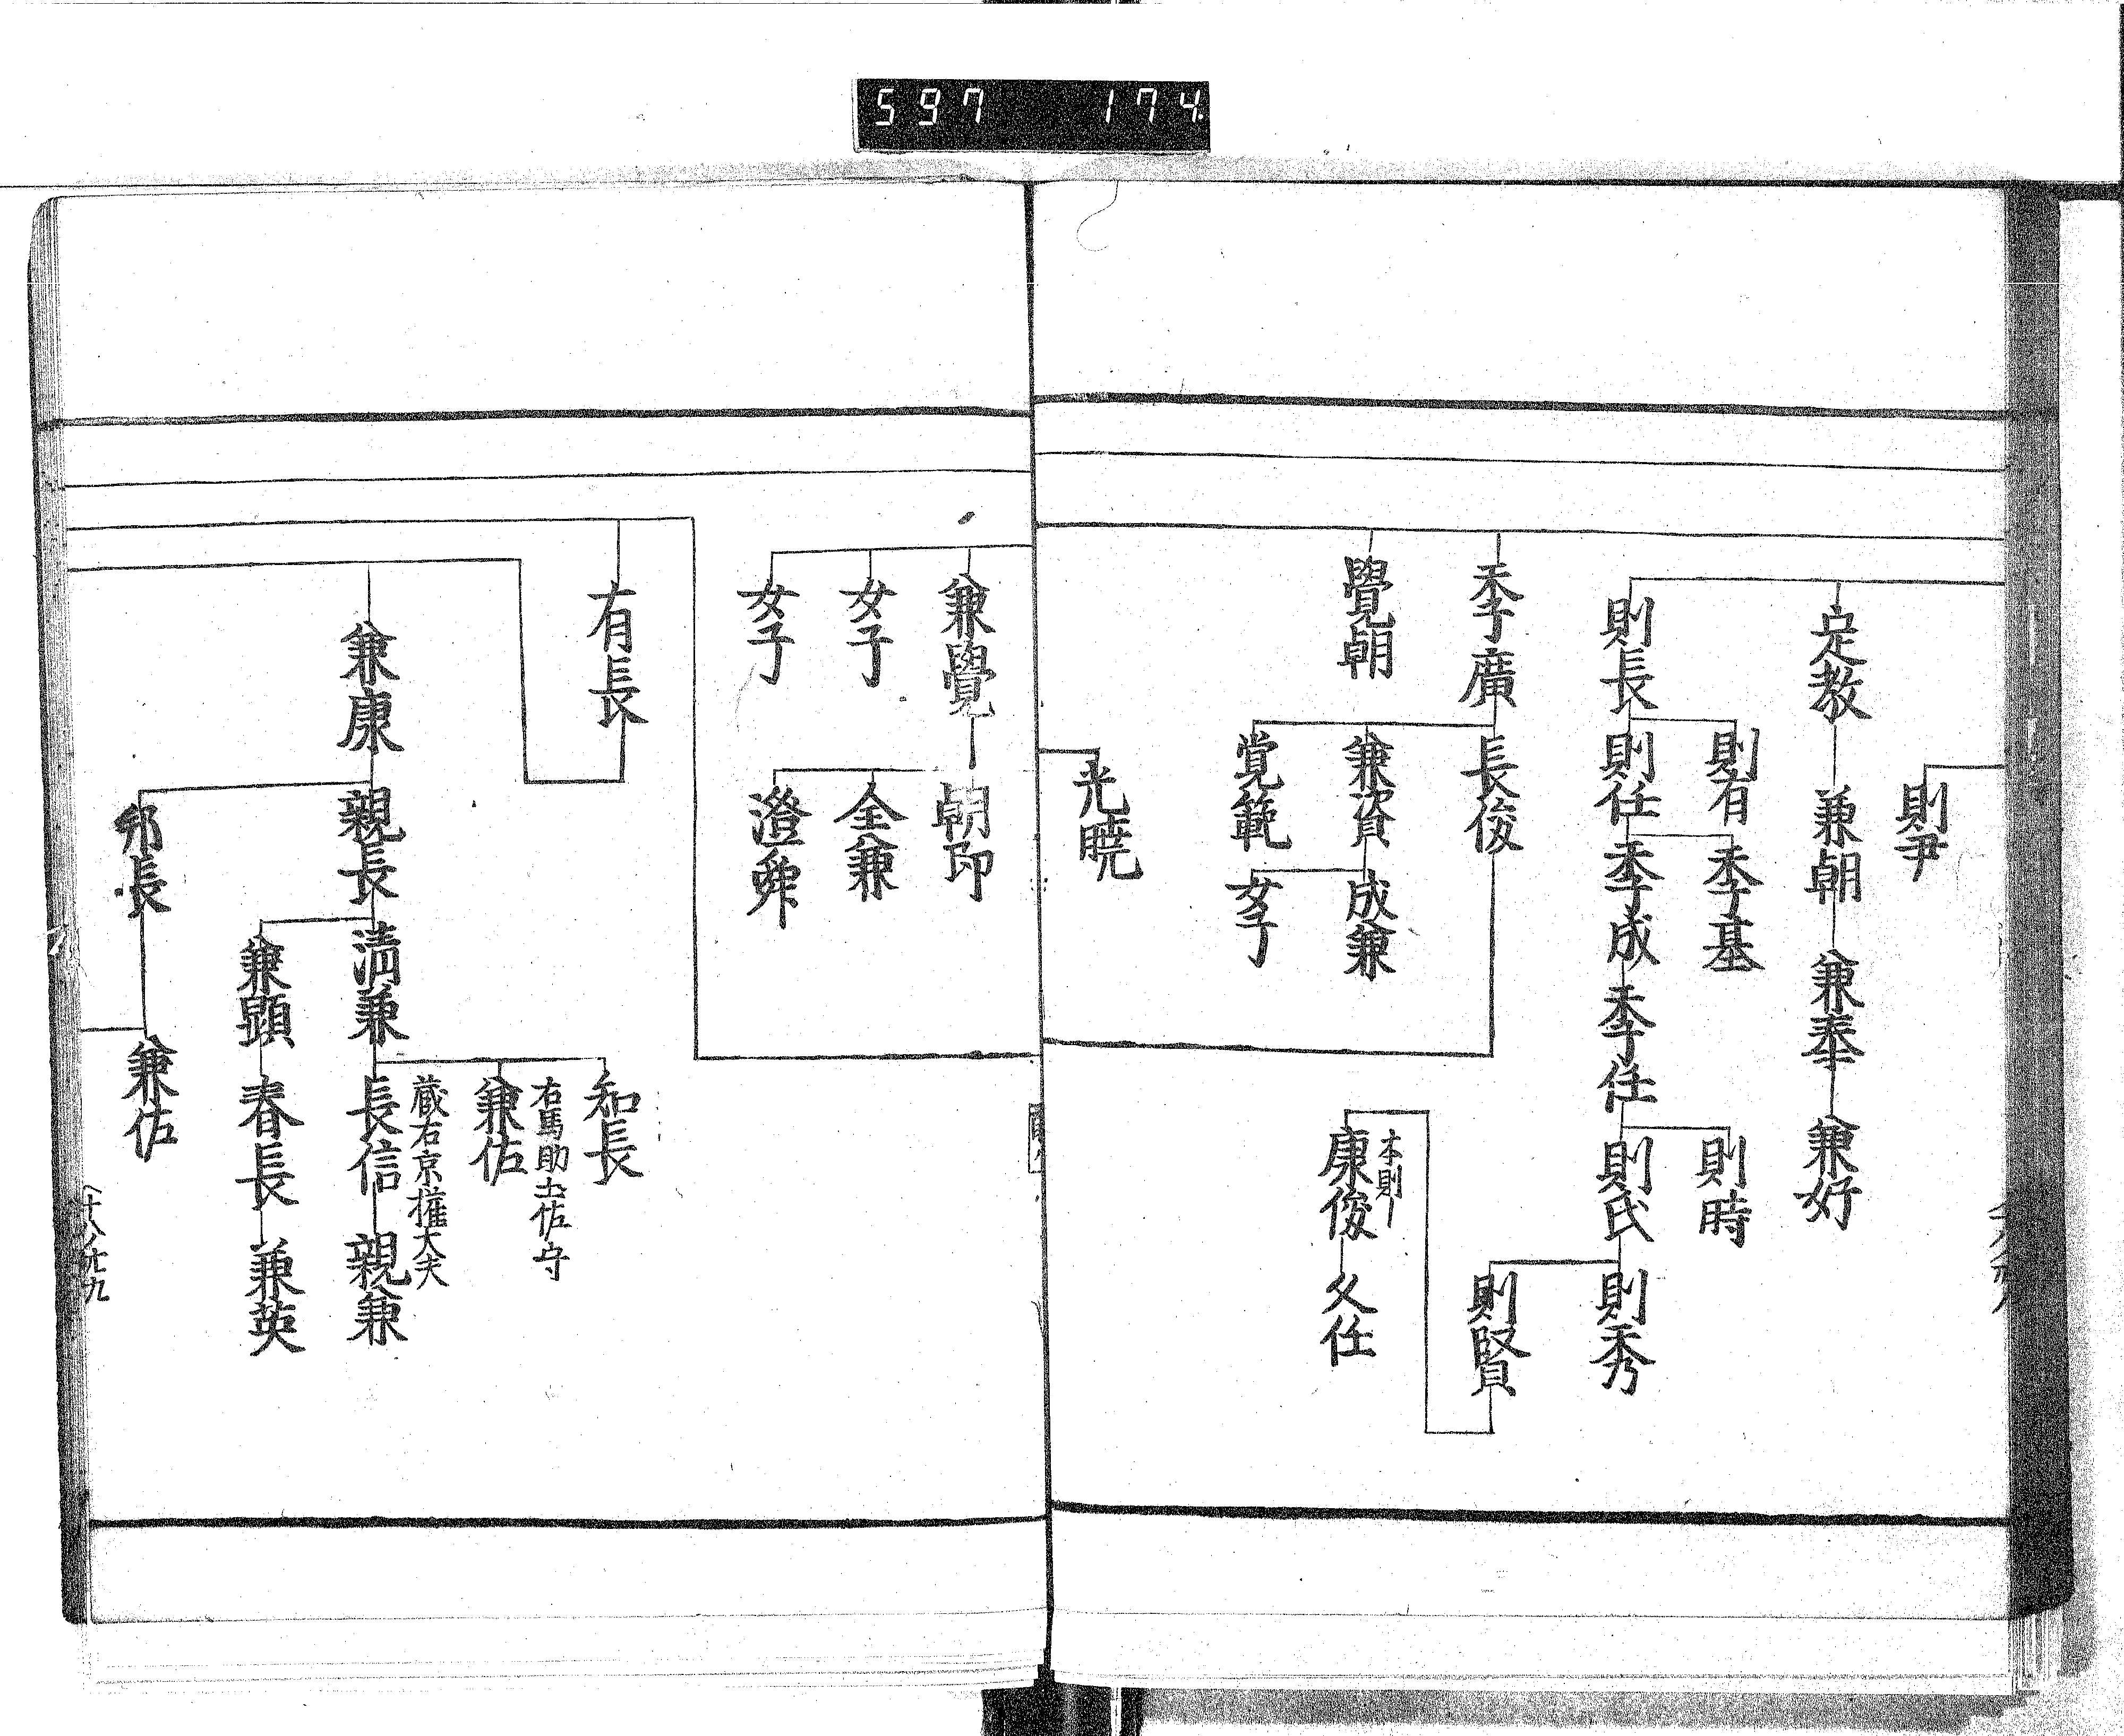 597 174
則尹
定教
兼朝
兼奉
兼好
則有
季基
則時
則長
則任
季成
季任
則氏
則秀
則賢
季廣
長俊
本則
康俊
久任
覺朝
兼資
成兼
覚範
女子
光暁
兼覺
朝印
女子
全兼
女子
澄舜
有長
知長
右馬助土佐守
兼佐
蔵右京権大夫
兼康
親長
清兼
長信
親兼
兼顕
春長
兼英
邦長
兼佐
十八ノ廿九